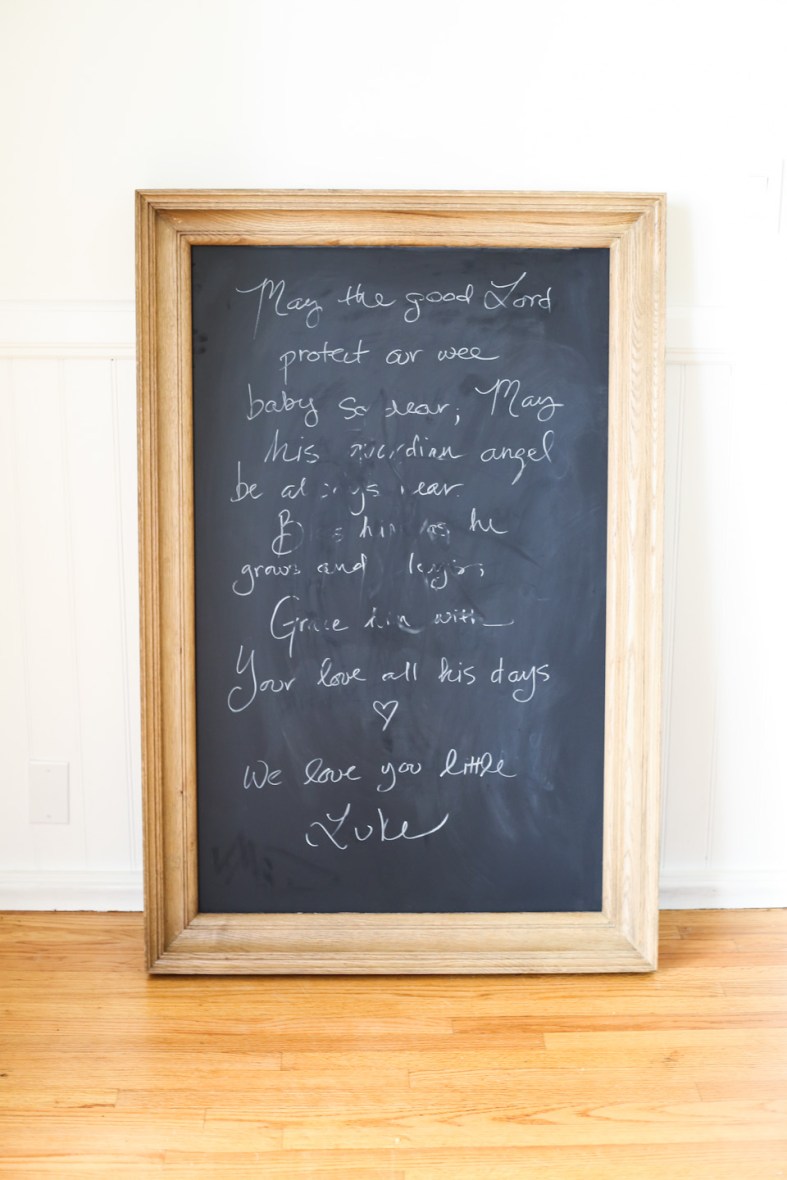 May the good Lord
protect our wee
baby so dear, May
his guardian angel
be always near.
Bless him as he
grows and
Grace him with
Your love all his days
♡
We love you little
Luke